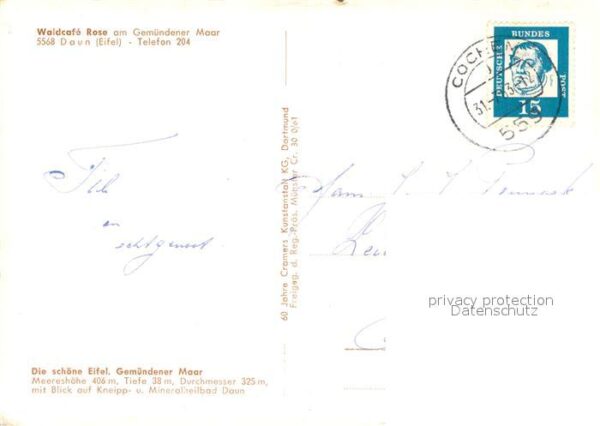 Waldcafé Rose am Gemündener Maar
5568 Daun (Eifel) - Telefon 204
DEUTSCHE BUNDES POST
15
COCHEM
559
60 Jahre Cramers Kunstanstalt KG, Dortmund
Freigeg. d. Reg.-Präs. Münster Cr. 30 0/61
en
echtgenoot.
Fam.
privacy protection
Datenschutz
Die schöne Eifel. Gemündener Maar
Meereshöhe 406 m, Tiefe 38 m, Durchmesser 325 m,
mit Blick auf Kneipp- u. Mineralheilbad Daun